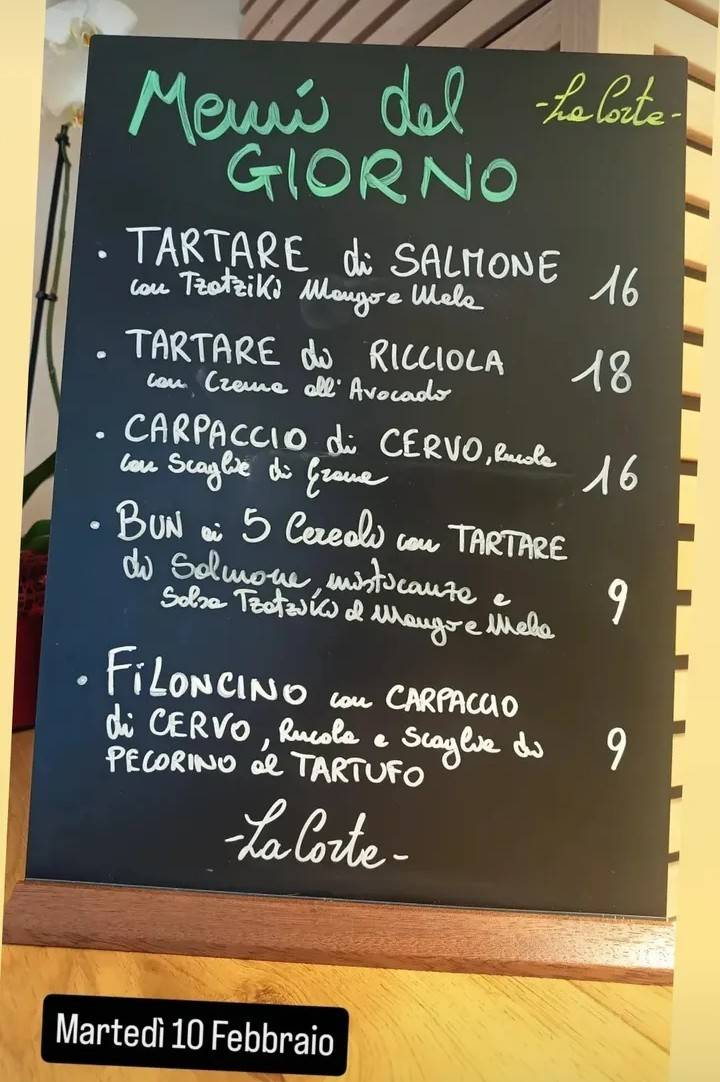 Menù del
GIORNO
-La Corte-
• TARTARE di SALMONE 16
con Tzatziki Mango e Mela
• TARTARE di RICCIOLA 18
con Crema all'Avocado
• CARPACCIO di CERVO, Rucola
con Scaglie di Grana 16
• BUN ai 5 Cereali con TARTARE
di Salmone, misticanza e 9
Salsa Tzatziki al Mango e Mela
• FiLONCINO con CARPACCIO
di CERVO, Rucola e Scaglie di 9
PECORINO al TARTUFO
-La Corte-
Martedì 10 Febbraio